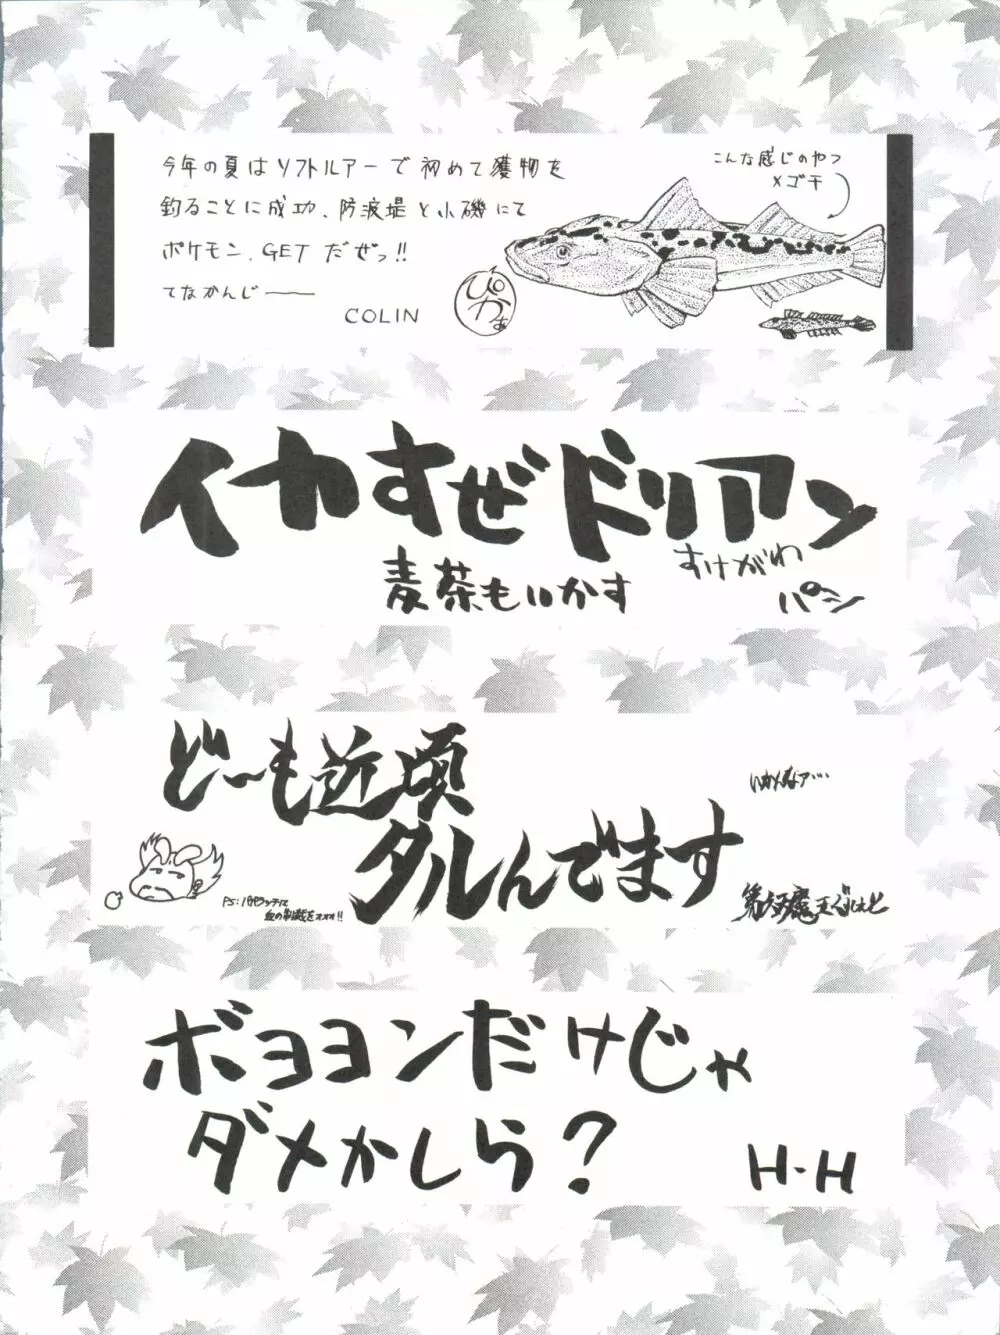 今年の夏はソフトルアーで初めて獲物を
釣ることに成功、防波堤と小磯にて
ポケモン、GETだぜっ!!
てなかんじ――
COLIN
ぴかぁ
こんな感じのやつ
メゴチ
イカすぜドリアン
麦茶もいかす
すけがわ
パン
どーも近頃
ダルんでます
いかんなァ…
PS:
血の制裁をォォォ!!
第六天魔王
ボヨヨンだけじゃ
ダメかしら?
H・H